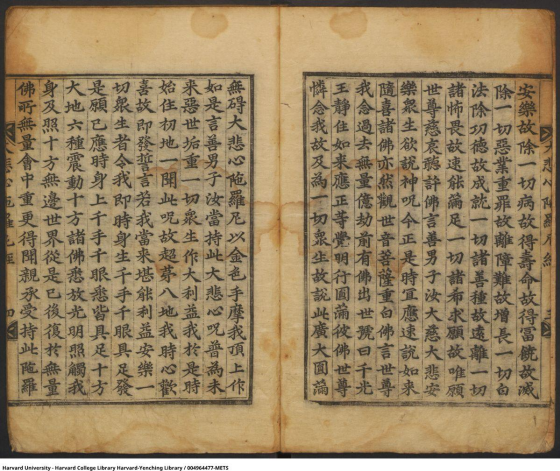 安樂故除一切病故得壽命故得冨饒故滅
除一切惡業重罪故離障難故增長一切白
法除功德故成就一切諸善種故遠離一切
諸怖畏故速能滿足一切諸希求願故唯願
世尊慈哀聽許佛言善男子汝大慈悲安
樂衆生欲說神呪今正是時宜應速說如來
隨喜諸佛亦然觀世音菩薩重白佛言世尊
我念過去無量億劫前有佛出世號曰千光
王靜住如來應正等覺明行圓滿彼佛世尊
憐念我故及為一切衆生故說此廣大圓滿
無碍大悲心陁羅尼以金色手摩我頂上作
如是言善男子汝當持此大悲心呪普為未
來惡世垢重一切衆生作大利益我於是時
始住初地一聞此呪故超苐八地我時心歡
喜故即發誓言若我當來堪能利益安樂一
切衆生者令我即時身生千手千眼具足發
是願已應時身上千手千眼悉皆具足十方
大地六種震動十方諸佛悉放光明照觸我
身及照十方無邊世界從是已後復於無量
佛所無量會中重更得聞親承受持此陁羅
大悲心陁羅尼經
四
Harvard University - Harvard College Library Harvard-Yenching Library / 004964477-METS